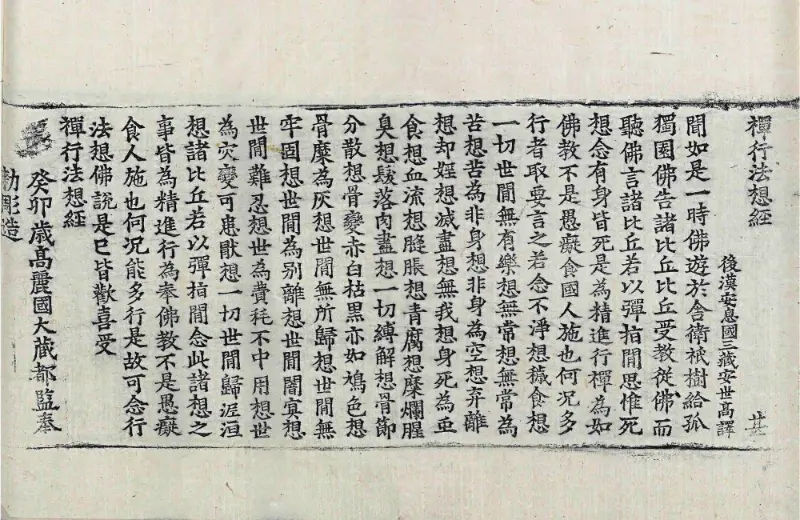 禪行法想經
後漢安息國三藏安世高譯
聞如是一時佛遊於舍衛祇樹給孤
獨園佛告諸比丘比丘受教從佛而
聽佛言諸比丘若以彈指間思惟死
想念有身皆死是為精進行禪為如
佛教不是愚癡食國人施也何況多
行者取要言之若念不淨想穢食想
一切世間無有樂想無常想無常為
苦想苦為非身想非身為空想弃離
想却婬想滅盡想無我想身死為虫
食想血流想膖脹想青腐想糜爛腥
臭想髮落肉盡想一切縛解想骨節
分散想骨變赤白枯黑亦如鳩色想
骨糜為灰想世間無所歸想世間無
牢固想世間為別離想世間闇冥想
世間難忍想世為費耗不中用想世
為灾變可患猒想一切世間歸泥洹
想諸比丘若以彈指間念此諸想之
事皆為精進行為奉佛教不是愚癡
食人施也何況能多行是故可念行
法想佛說是已皆歡喜受
禪行法想經
癸卯歲高麗國大藏都監奉
勅彫造